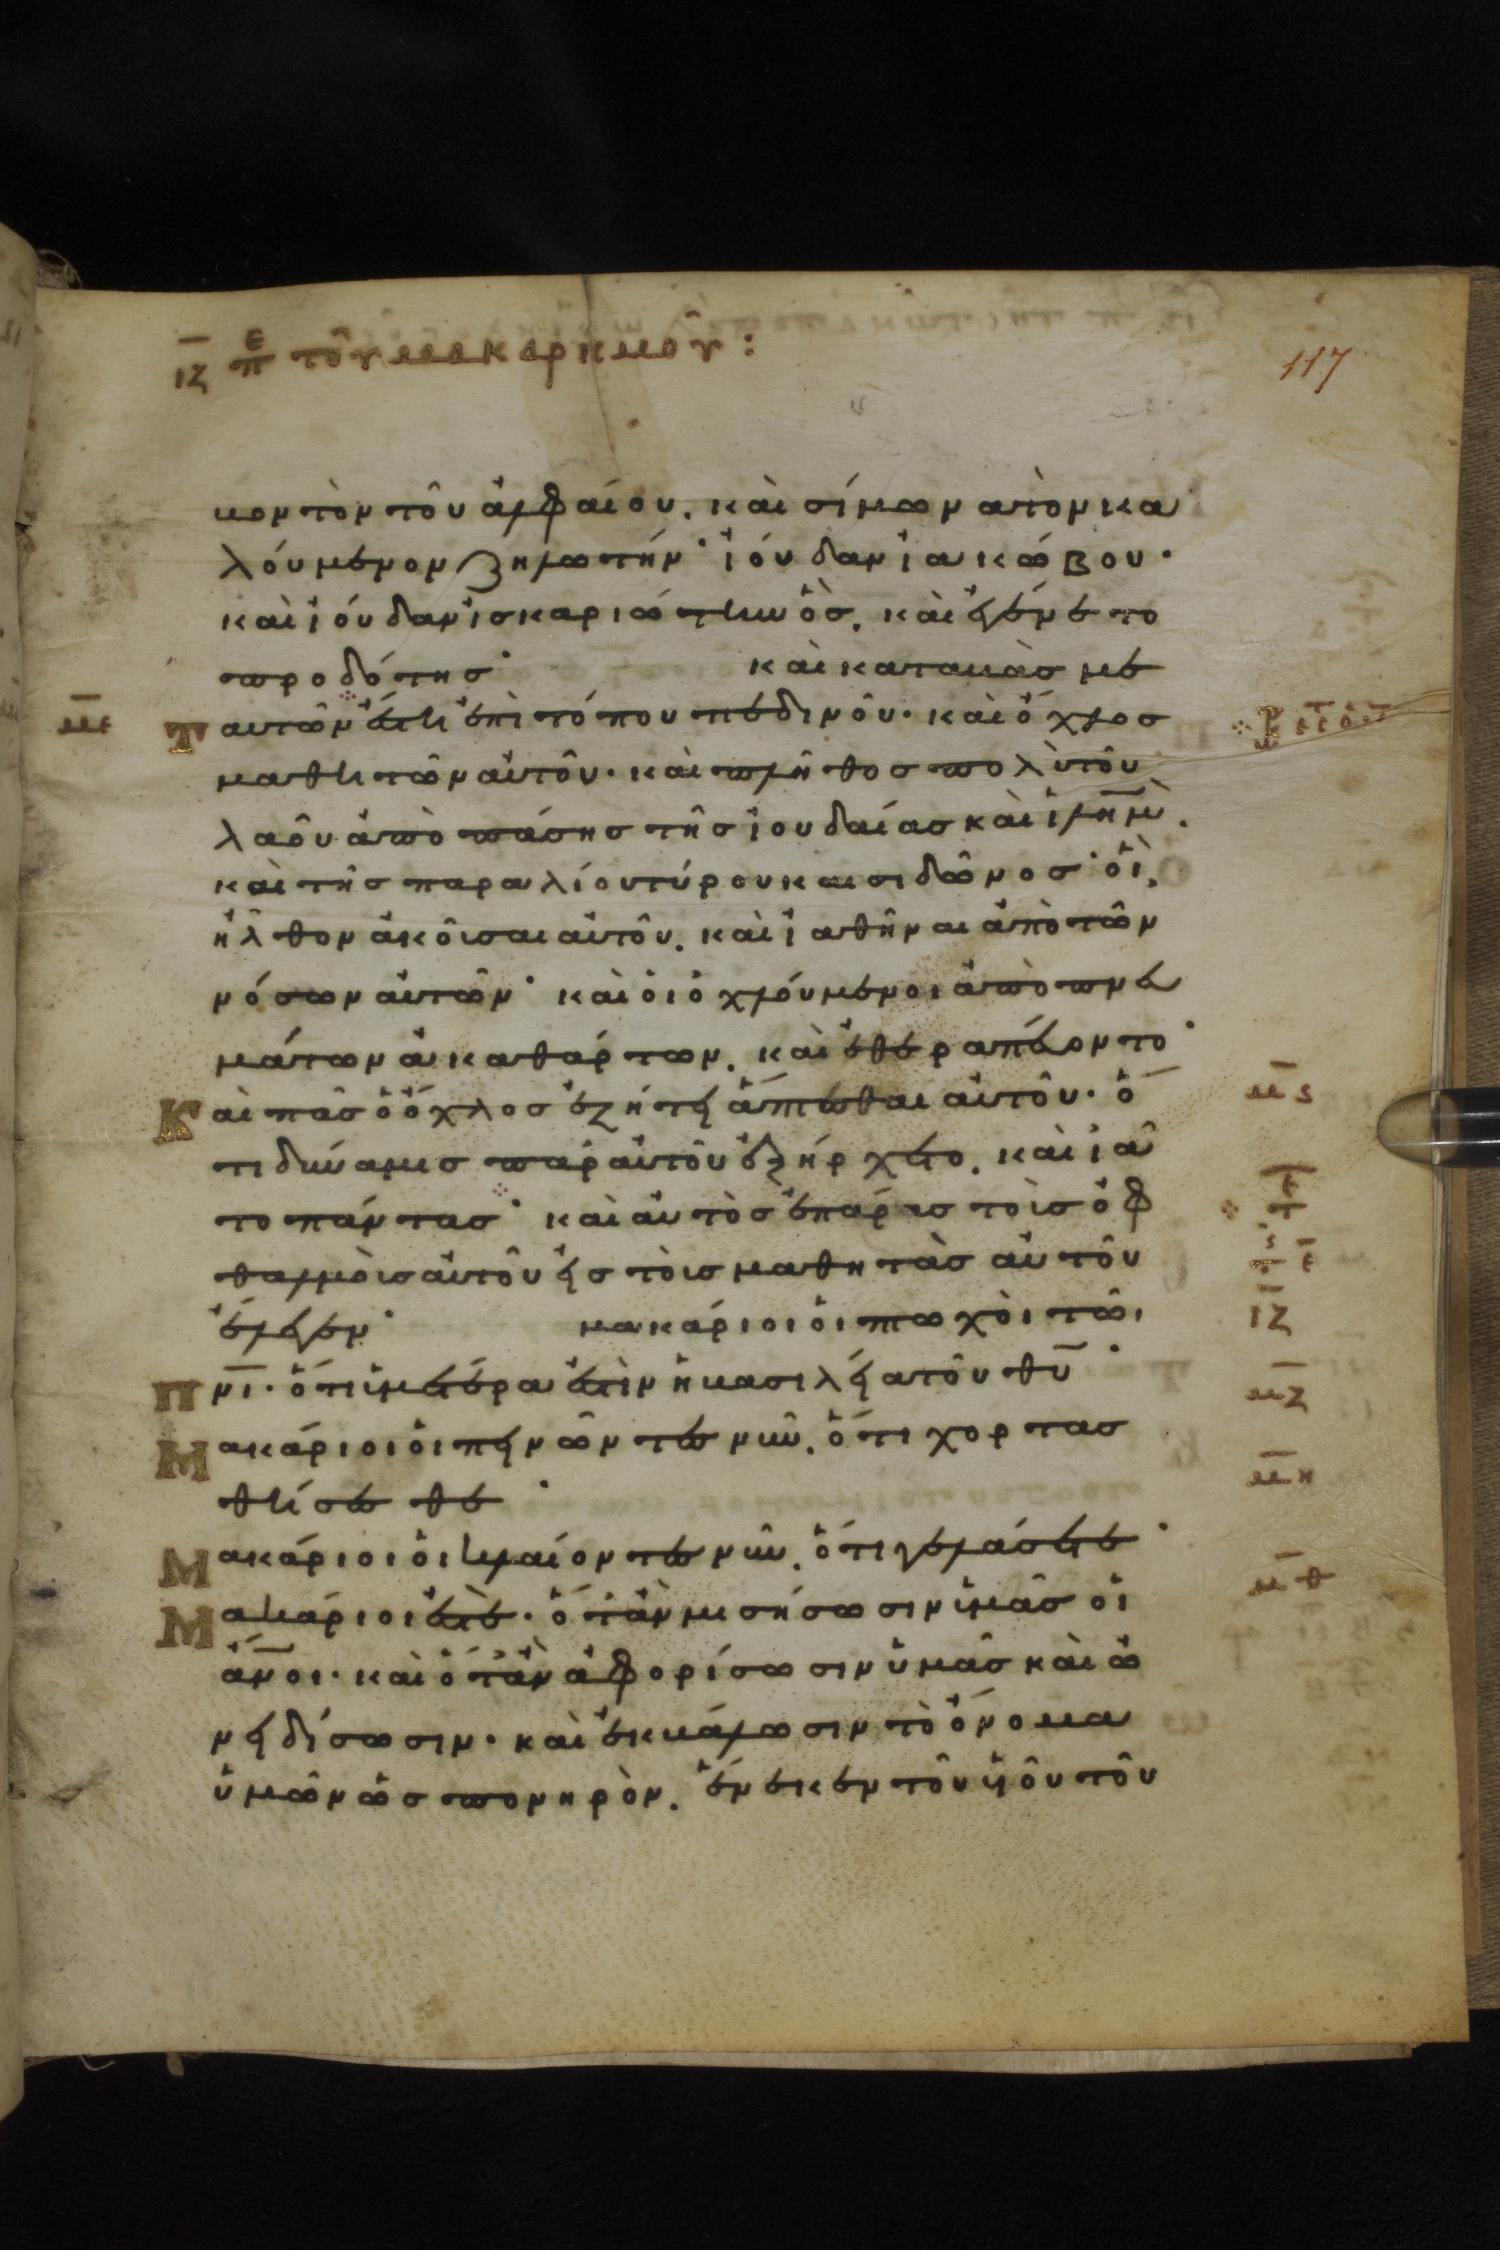 ιζ πε τοῦ μακαρισμοῦ:
117
κον τὸν τοῦ ἀλφαίου. καὶ σίμωνα τὸν κα
λούμενον ζηλωτήν· ἰούδαν ἰακώβου·
καὶ ἰούδαν ἰσκαριώτην ὃς. καὶ ἐγένετο
προδότης· καὶ καταβὰς με
με Τ αυτῶν ἔστη ἐπὶ τόπου πεδινοῦ· καὶ ὄχλος
μαθητῶν αὐτοῦ· καὶ πλῆθος πολὺ τοῦ
λαοῦ ἀπὸ πάσης τῆς ἰουδαίας καὶ ἰλὴμ.
καὶ τῆς παραλίου τύρου και σιδῶνος· οἳ
ἦλθον ἀκοῦσαι αὐτοῦ. καὶ ἰαθῆναι ἀπὸ τῶν
νόσων αὐτῶν· καὶ οἱ ὀχλούμενοι ἀπὸ πνευ
μάτων ἀκαθάρτων. καὶ ἐθεραπεύοντο·
Και πᾶς ὁ ὄχλος ἐζήτει ἅπτεσθαι αὐτοῦ· ὅ μς
τι δύναμις παρ αὐτοῦ ἐξήρχετο. καὶ ἰᾶ
το πάντας· καὶ αὐτὸς ἐπάρας τοὺς ὀφ
θαλμοὺς αὐτοῦ εἰς τοὺς μαθητὰς αὐτοῦ
ἔλεγεν· μακάριοι οἱ πτωχοὶ τῶι ιζ
Πνι· ὅτι ὑμετέρα ἐστὶν ἡ βασιλεία τοῦ θυ· μζ
Μακάριοι οἱ πεινῶντες νῦν. ὅτι χορτασ μη
θήσεσθε·
Μακάριοι οἱ κλαίοντες νῦν. ὅτι γελάσετε· μθ
Μακάριοι ἐστὲ· ὅταν μισήσωσιν ὑμᾶς οἱ
ἄνοι· καὶ ὅταν ἀφορίσωσιν ὑμᾶς καὶ ὀ
νειδίσωσιν· καὶ ἐκβάλωσιν τὸ ὄνομα
ὑμῶν ὡς πονηρὸν. ἕνεκεν τοῦ υἱοῦ τοῦ